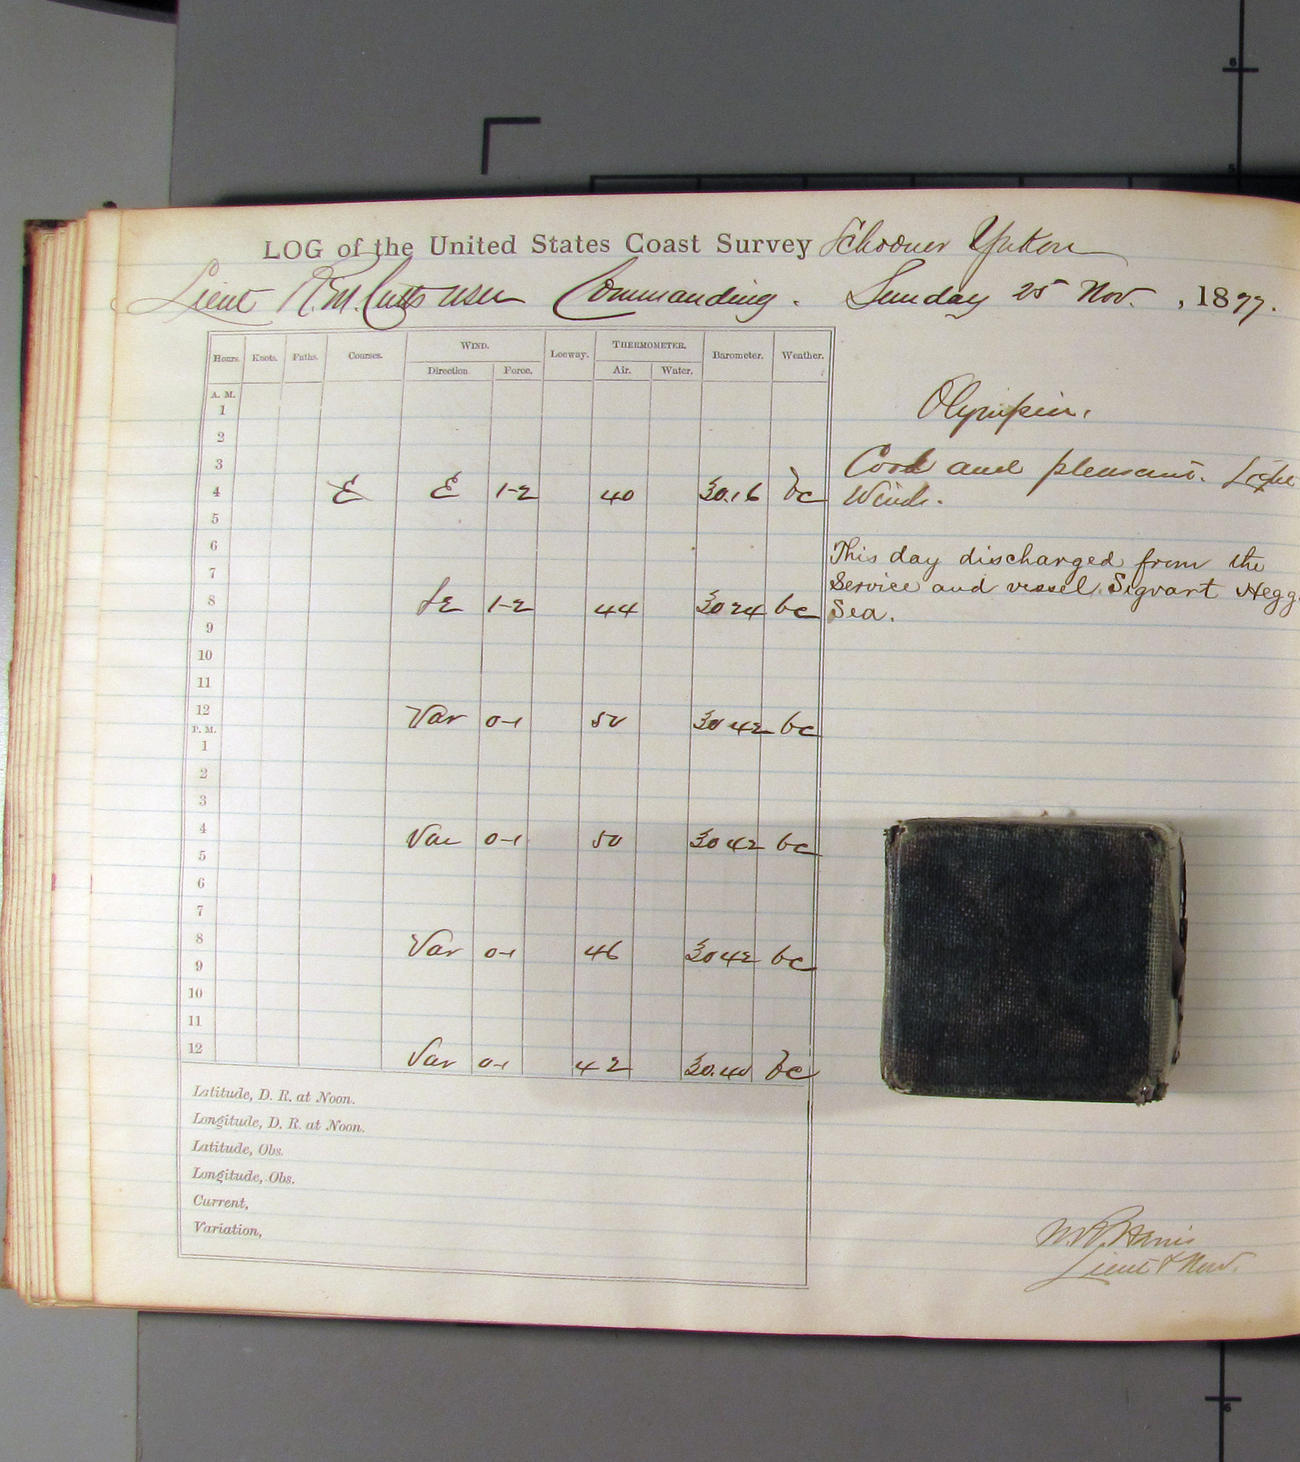 LOG of the United States Coast Survey Schooner Yukon
Lieut R.M. Cutts USN Commanding. Sunday 25 Nov. , 1877.
Hours. Knots. Faths. Courses. WIND. Direction. Force. Leeway. THERMOMETER. Air. Water. Barometer. Weather.
Olympia.
A. M.
1
2
3
Cool and pleasant. Light
4 E E 1-2 40 30.16 bc
Winds.
5
6
This day discharged from the
7
Service and vessel Sigvart Hegg
8 SE 1-2 44 30 24 bc
Sea.
9
10
11
12 Var 0-1 50 30 42 bc
P. M.
1
2
3
4 Var 0-1 50 30 42 bc
5
6
7
8 Var 0-1 46 30 42 bc
9
10
11
12 Var 0-1 42 30.40 bc
Latitude, D. R. at Noon.
Longitude, D. R. at Noon.
Latitude, Obs.
Longitude, Obs.
Current,
Variation,
Harris
Lieut & Nav.